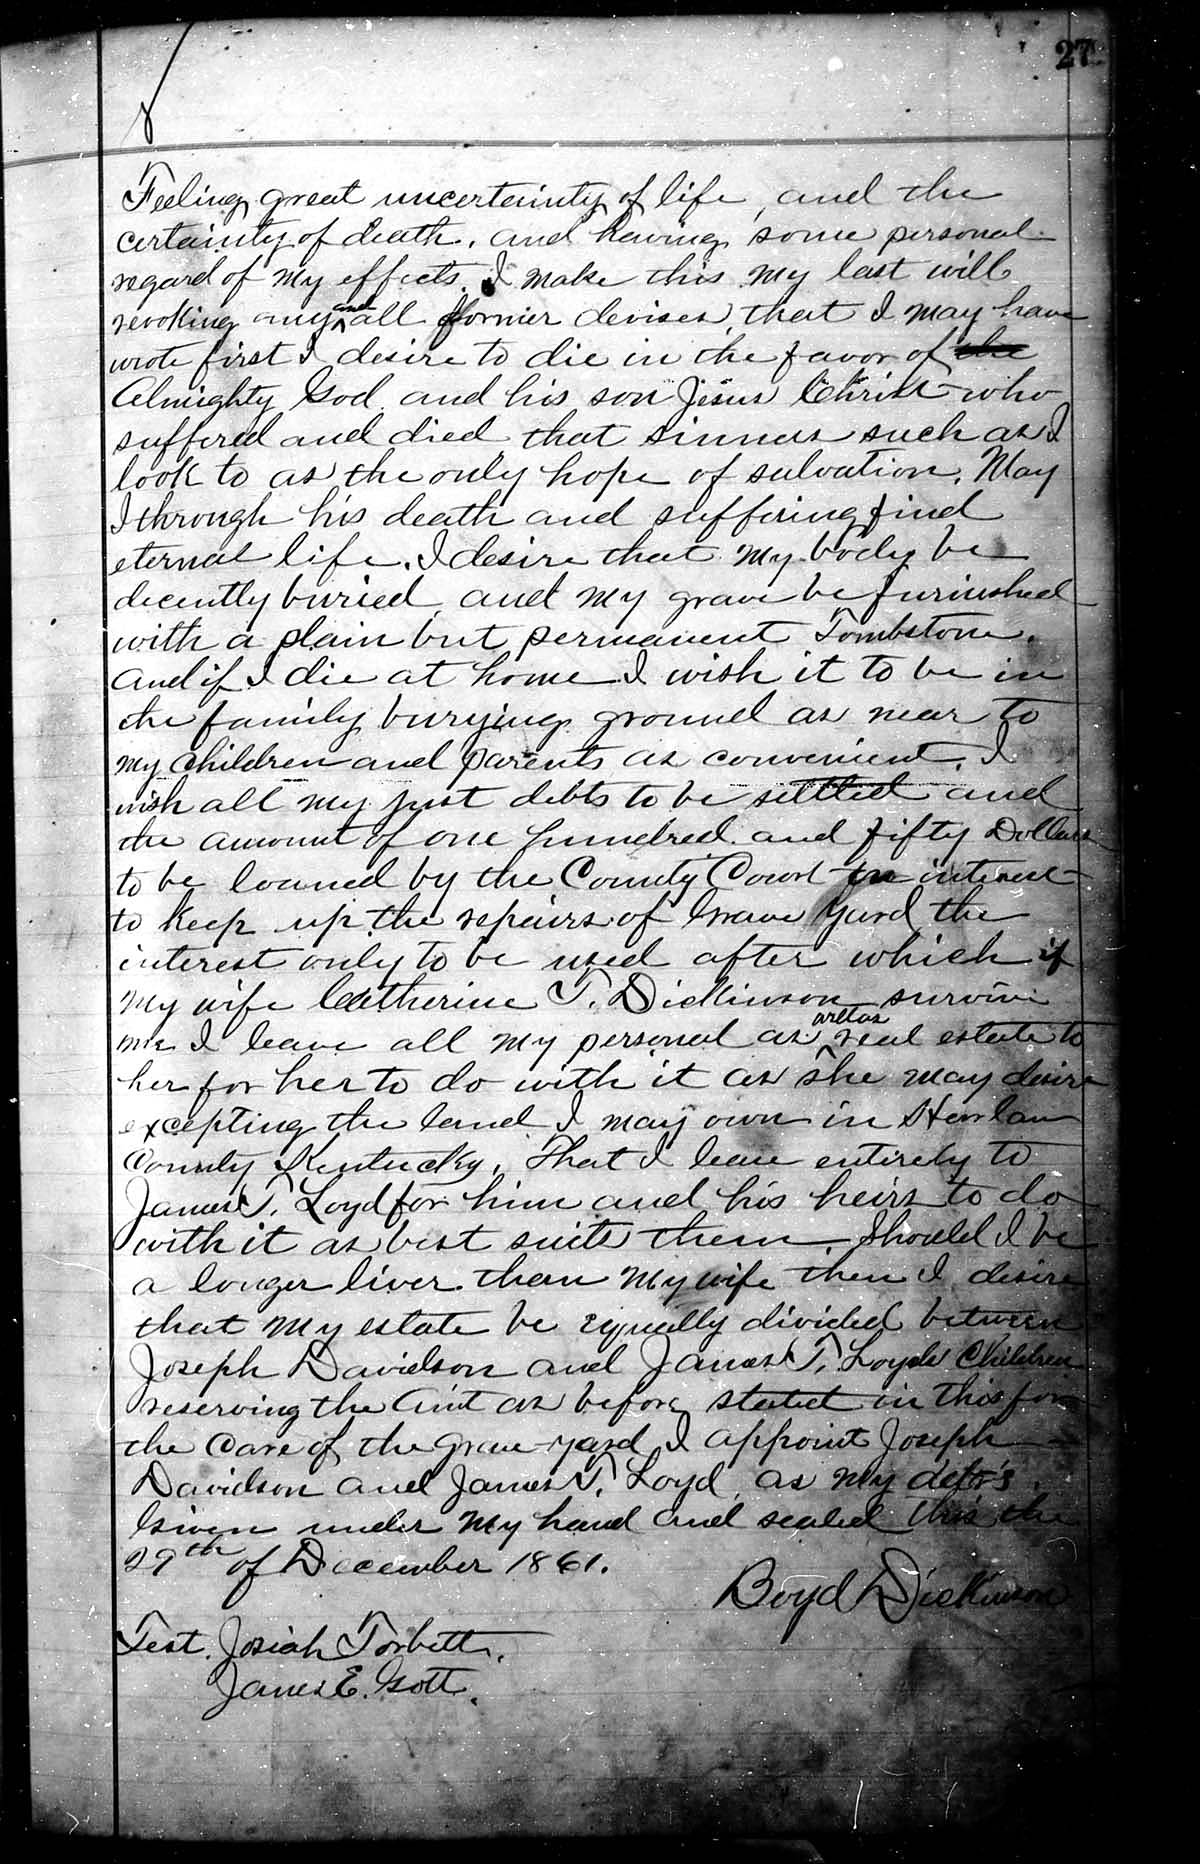 27
Feeling great uncertainty of life, and the
certainty of death, and having some personal
regard of my effects. I make this my last will
revoking any and all former devises, that I may have
wrote first I desire to die in the favor of the
Almighty God and his son Jesus Christ who
suffered and died that sinners such as I
look to as the only hope of salvation. May
I through his death and suffering find
eternal life. I desire that my body be
decently buried and my grave be furnished
with a plain but permanent Tombstone.
and if I die at home I wish it to be in
the family burying ground as near to
my children and parents as convenient. I
wish all my just debts to be settled and
the amount of one hundred and fifty Dollars
to be loaned by the County Court on interest
to keep up the repairs of Grave Yard the
interest only to be used after which if
my wife Catherine T. Dickinson survive
me I leave all my personal as real estate to
her for her to do with it as she may desire
excepting the land I may own in Harlan
County Kentucky. That I leave entirely to
James T. Loyd for him and his heirs to do
with it as best suits them. Should I be
a longer liver than my wife then I desire
that my estate be equally divided between
Joseph Davidson and James T. Loyds Children
reserving the amt as before stated in this for
the care of the grave yard I appoint Joseph
Davidson and James T. Loyd as my
Given under my hand and sealed this the
29th of December 1861.
Boyd Dickinson
Test. Josiah Torbett.
James E. Gott.